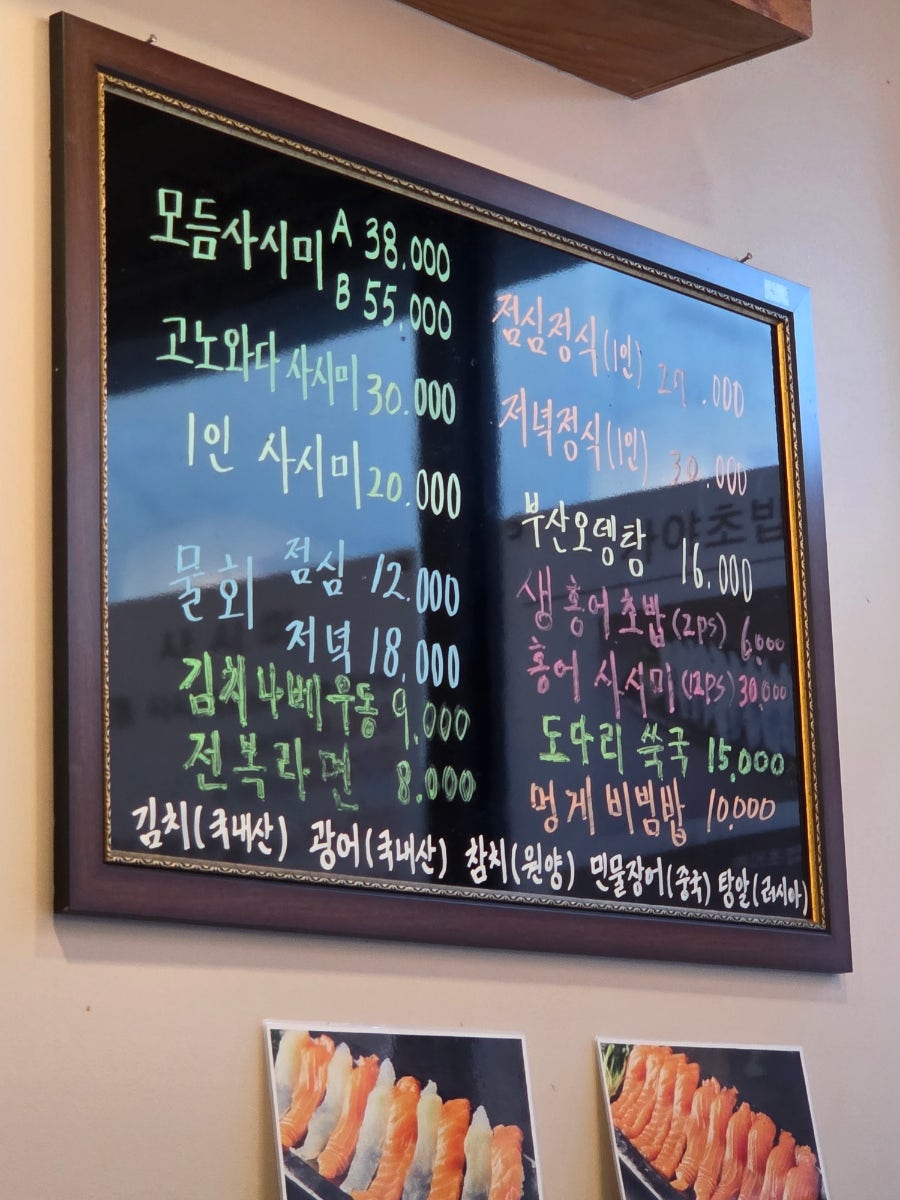 모듬사시미 A 38.000
B 55.000
고노와다 사시미 30.000
1인 사시미 20.000
물회 점심 12.000
저녁 18.000
김치나베우동 9.000
전복라면 8.000
점심정식(1인) .000
저녁정식(1인) 30.000
부산오뎅탕 16.000
생홍어초밥(2ps) 6,000
홍어 사시미(12ps) 30,000
도다리 쑥국 15,000
멍게비빔밥 10,000
김치(국내산) 광어(국내산) 참치(원양) 민물장어(중국) 탕알(러시아)